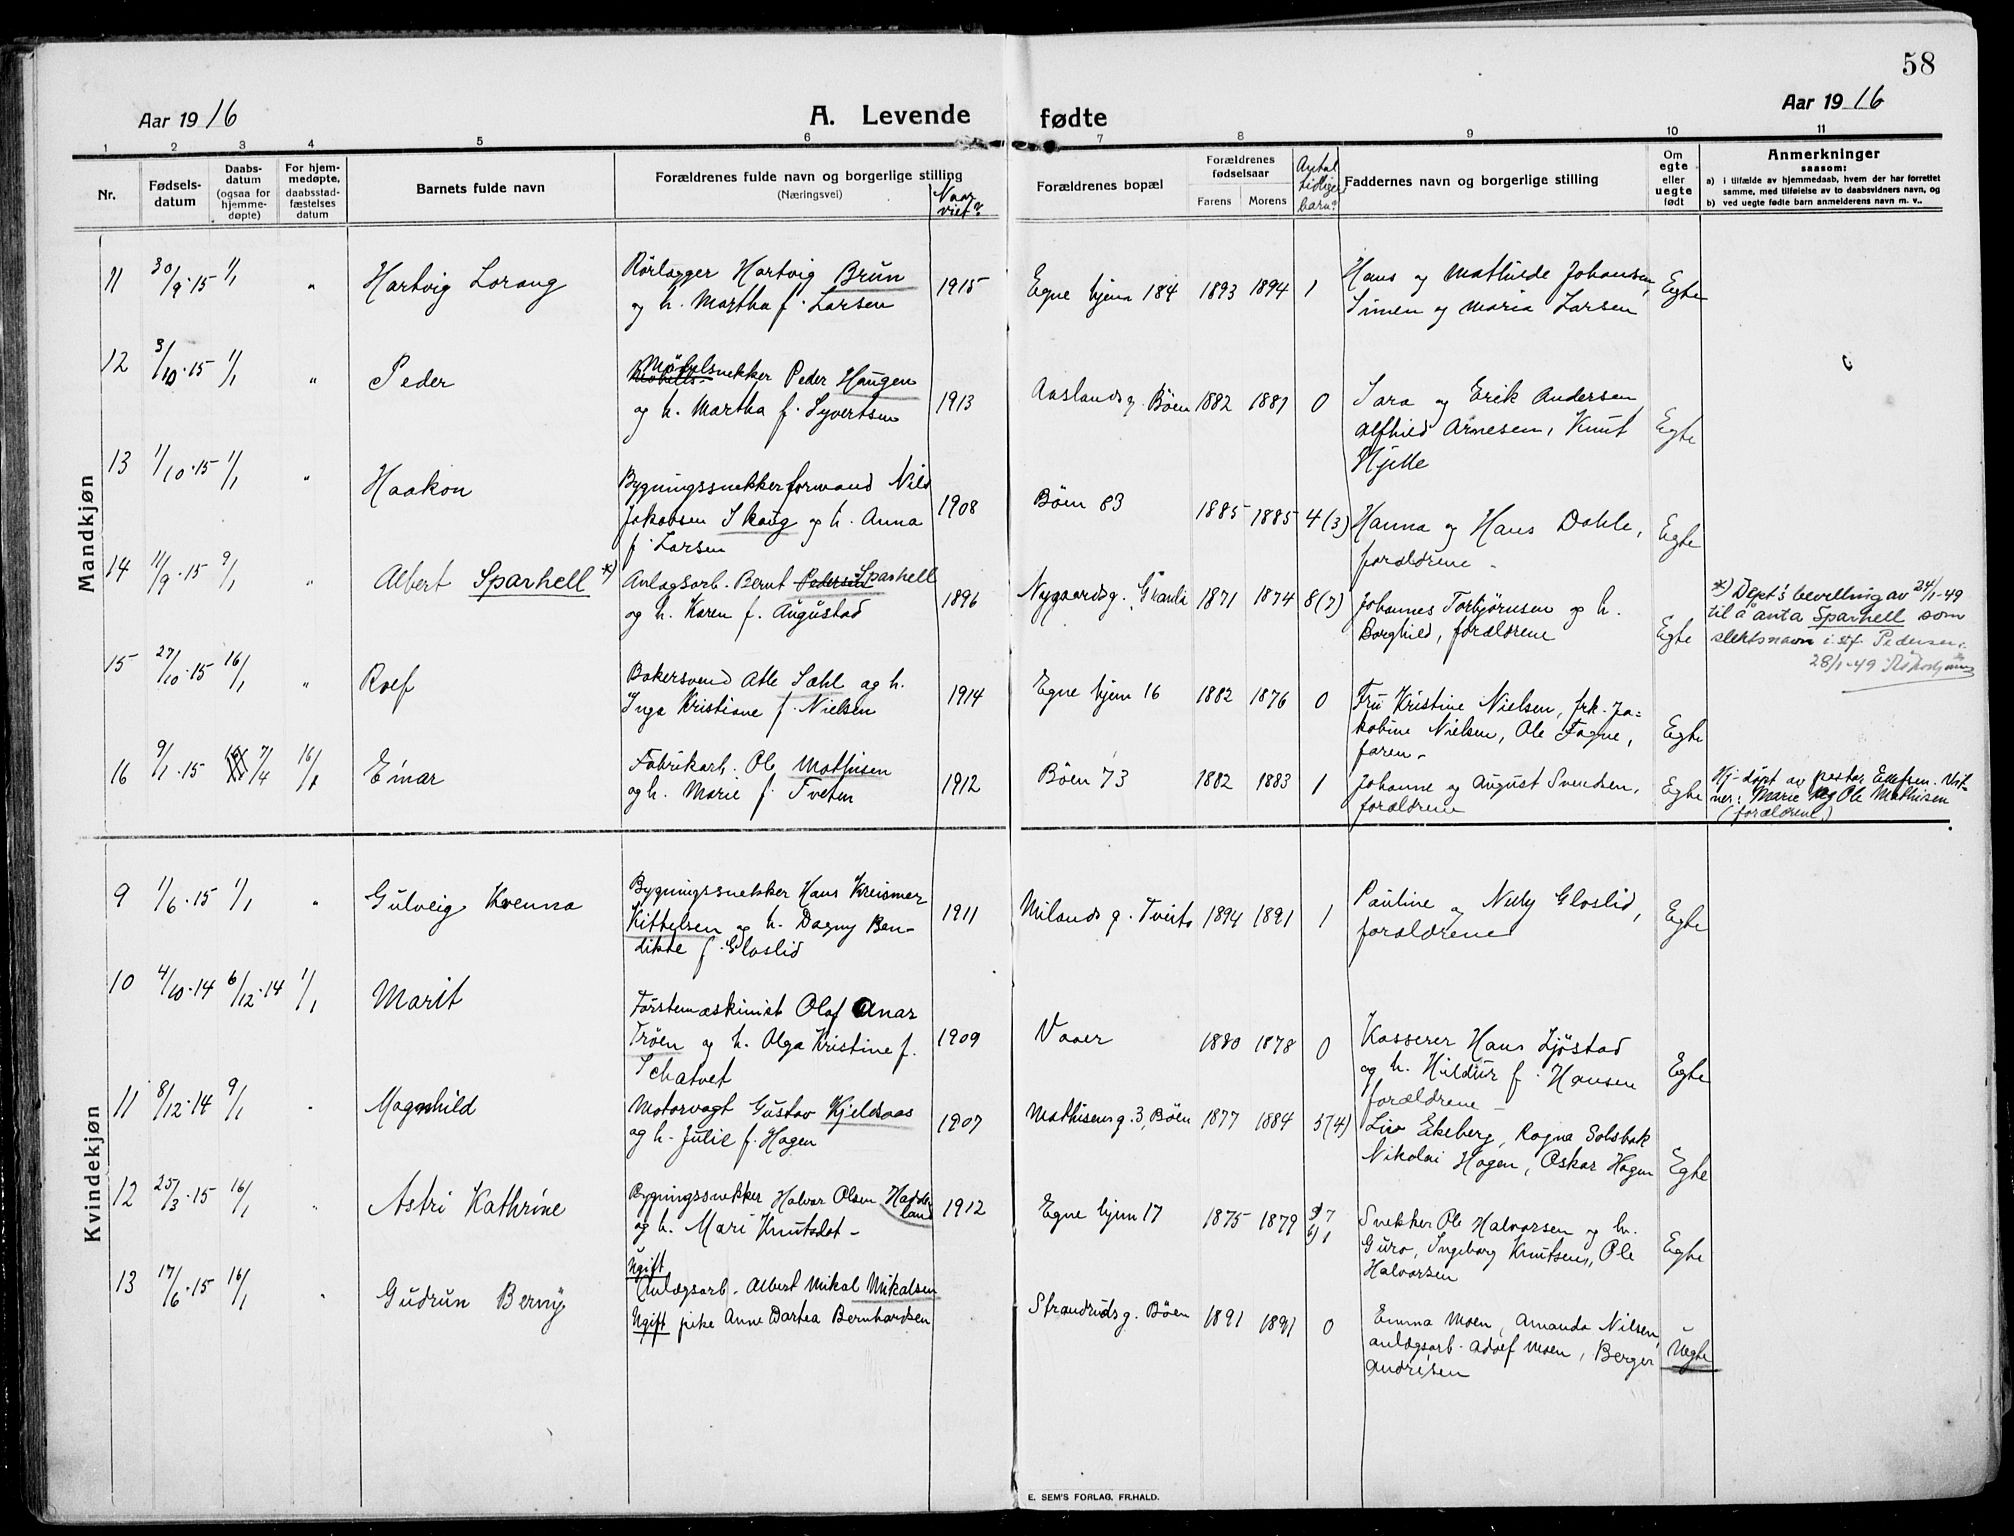 58
Aar 1916
A. Levende fødte
Aar 1916
1 2 3 4 5 6 7 8 9 10 11
Nr.
Fødsels-
datum
Daabs-
datum
(ogsaa for
hjemme-
døpte)
For hjem-
medøpte,
daabsstad-
fæstelses
datum
Barnets fulde navn
Forældrenes fulde navn og borgerlige stilling
(Næringsvei)
Naar
viet?
Forældrenes bopæl
Forældrenes
fødselsaar
Farens Morens
Antal
tidligere
barn?
Faddernes navn og borgerlige stilling
Om
egte
eller
uegte
født
Anmerkninger
saasom:
a) i tilfælde av hjemmedaab, hvem der har forrettet
samme, med tilføielse av to daabsvidners navn, og
b) ved uegte fødte barn anmelderens navn m. v..
Mandkjøn
11 30/9.15 1/1 " Hartvig Lorang
Rørlægger Hartvig Brun
og h. Martha f. Larsen
1915 Egne hjem 184 1893 1894 1
Hans og Mathilde Johansen,
Simen og Maria Larsen
Egte
12 3/10.15 1/1 " Peder
Møbelsnekker Peder Haugen
og h. Martha f. Syvertsen
1913 Aaslandsg. Bøen 1882 1881 0
Sara og Erik Andersen
Alfhild Arnesen, Knut
Hjelle
Egte
13 1/10.15 1/1 " Haakon
Bygningssnekkerformand Nils
Jakobsen Skaug og h. Anna
f. Larsen
1908 Bøen 83 1885 1885 4(3)
Hanna og Hans Dahle,
forældrene.
Egte
14 11/9.15 9/1 " Albert Sparhell *)
Anlægsarb. Bernt Pedersen Sparhell
og h. Karen f. Augustad
1896 Nygaardsg. Grønli 1871 1874 8(7)
Johannes Torbjørnsen og h.
Borghild, forældrene
Egte
*) Dept's bevilling av 24/1-49
til å anta Sparhell som
slektsnavn i st.f. Pedersen.
28/1-49
15 27/10.15 16/1 " Rolf
Bakersvend Atle Sæhl og h.
Inga Kristiane f. Nielsen
1914 Egne hjem 16 1882 1876 0
Fru Kristine Nielsen, frk. Ja=
kobine Nielsen, Ole Fagne,
faren.
Egte
16 9/1.15 7/4 16/1 Einar
Fabrikarb. Ole Mathisen
og h. Marie f. Tveten
1912 Bøen 73 1882 1883 1
Johanne og August Svendsen,
forældrene
Egte
Hj-døpt av pastor Ellefsen. Vit-
ner: Marie og Ole Mathisen
(forældrene)
Kvindekjøn
9 1/6.15 1/1 " Gulveig Kvenna
Bygningssnekker Hans Kreismer
Kittelsen og h. Dagny Ben-
dikte f. Gloslid
1911 Milandsg. Tveito 1894 1891 1
Pauline og Nuly Gloslid,
forældrene
Egte
10 4/10.14 6/12.14 1/1 Marit
Førstemaskinist Olaf Anar
Trøen og h. Olga Kristine f.
Schatvet
1909 Vaaer 1880 1878 0
Kasserer Hans Ljøstad
og h. Hildur f. Hansen
forældrene
Egte
11 8/12.14 9/1 " Magnhild
Motorvagt Gustav Kjeldsaas
og h. Julie f. Hagen
1907 Mathisensg. 3, Bøen 1877 1884 5(4)
Liva Ekeberg, Ragna Solsbak
Nikolai Hagen, Oskar Hagen
Egte
12 25/3.15 16/1 " Astri Kathrine
Bygningssnekker Halvor Olsen Hadde-
land
og h. Mari Knutsdot-
1912 Egne hjem 17 1875 1879 a) 7
b) 1
Snekker Ole Halvorsen og h.
Guro, Ingeborg Knutsen, Ole
Halvorsen
Egte
13 17/6.15 16/1 " Gudrun Berny
Ugift
Anlægsarb. Albert Mikal Mikalsen
Ugift pike Anne Dartea Bernhardsen
Strandridsg. Bøen 1891 1891 0
Emma Moen, Amanda Nilsen,
anlægsarb. Adolf Moen, Berger
Andrisen
Uegte
E. SEM'S FORLAG, FR.HALD.